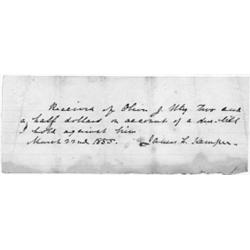 Received of Oliver J. Wky Two and
a half dollars on account of a due-bill
I hold against him
March 22nd 1855. James L. Kemper.